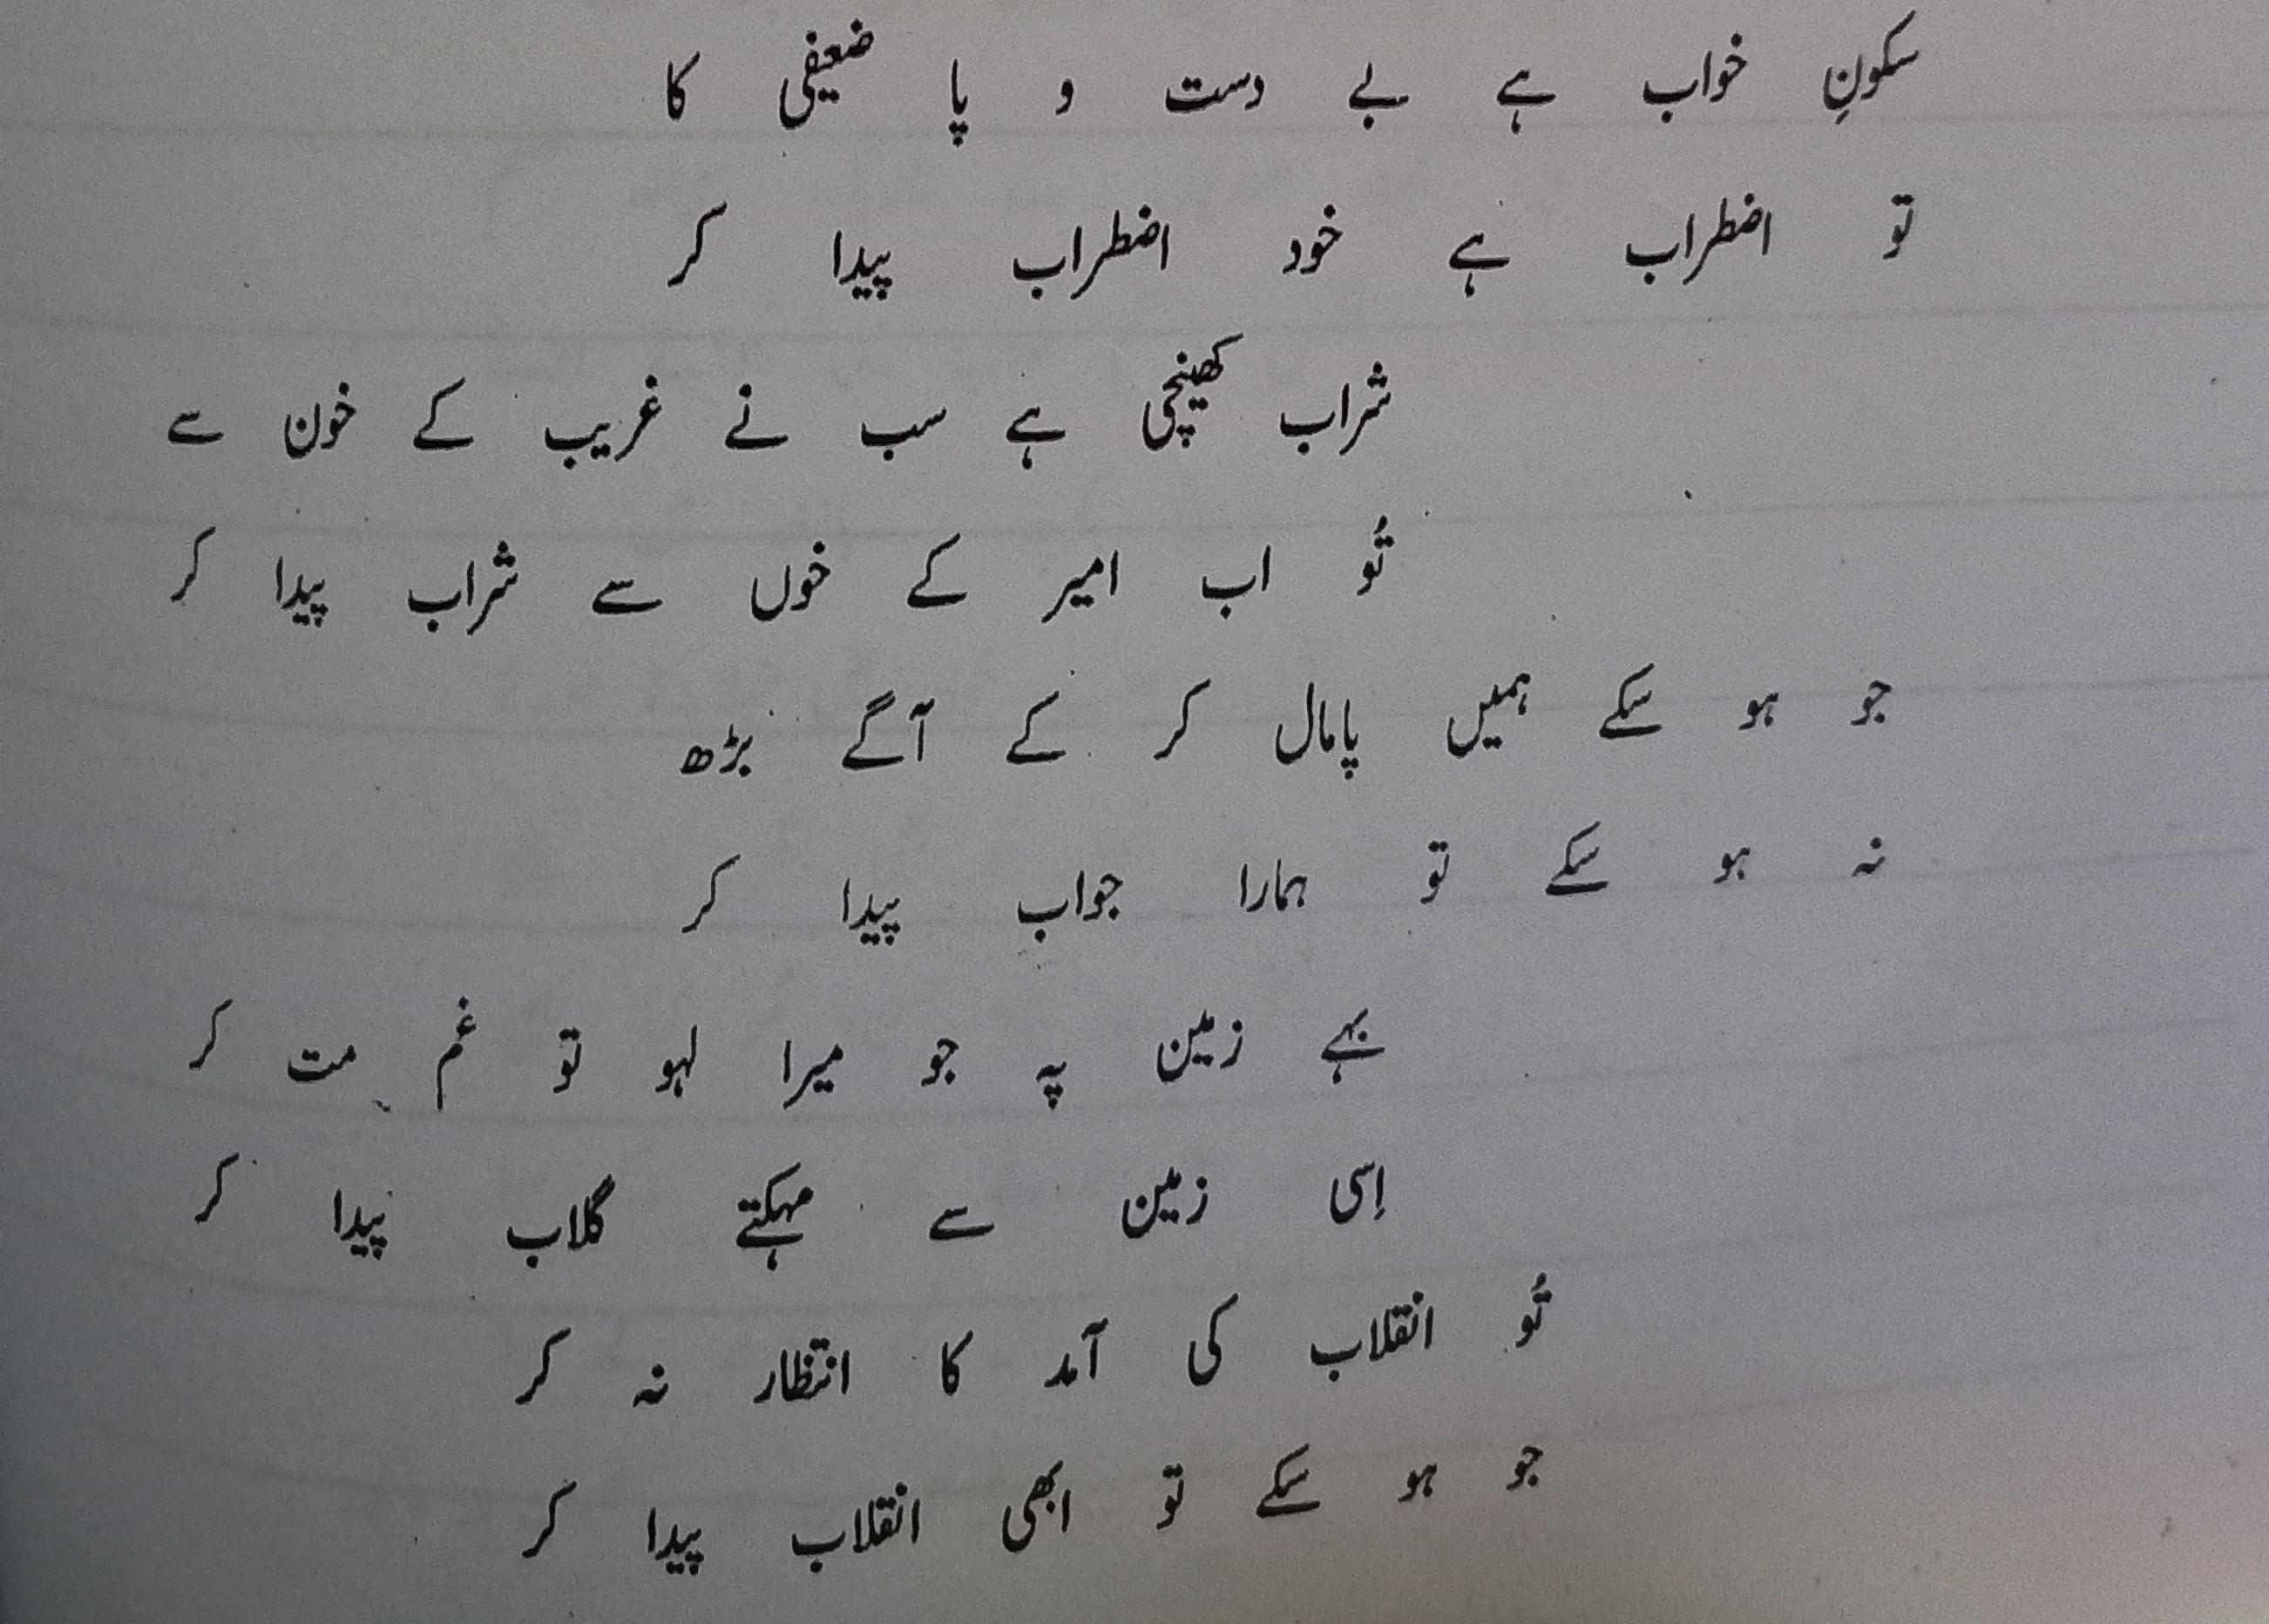 سکونِ خواب ہے بے دست و پا ضعیفی کا
تو اضطراب ہے خود اضطراب پیدا کر
شراب کھینچی ہے سب نے غریب کے خون سے
تُو اب امیر کے خوں سے شراب پیدا کر
جو ہو سکے ہمیں پامال کر کے آگے بڑھ
نہ ہو سکے تو ہمارا جواب پیدا کر
بہے زمین پہ جو میرا لہو تو غم مت کر
اِسی زمین سے مہکتے گلاب پیدا کر
تُو انقلاب کی آمد کا انتظار نہ کر
جو ہو سکے تو ابھی انقلاب پیدا کر